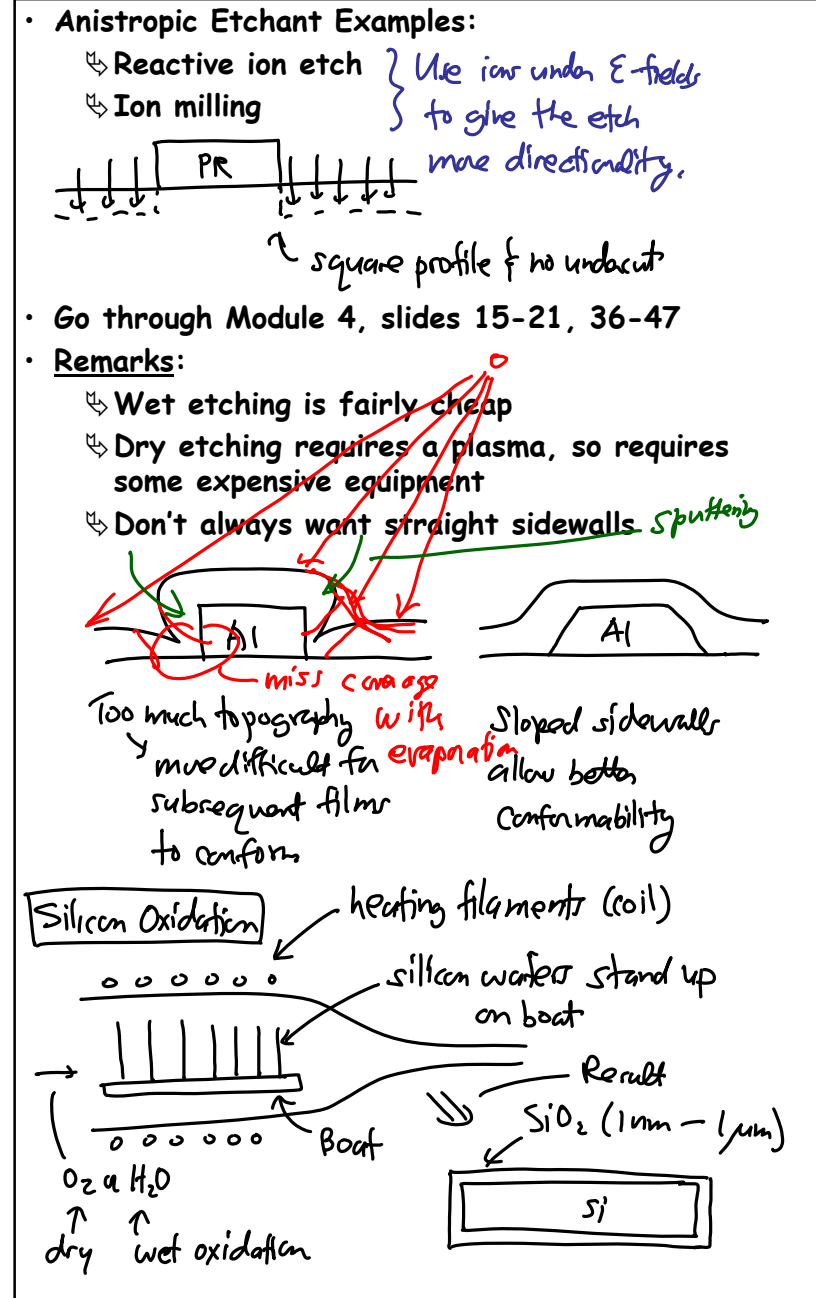 • Anistropic Etchant Examples:
Reactive ion etch
Ion milling
Use ions under E-fields
to give the etch
more directionality.
PR
square profile & no undercut
• Go through Module 4, slides 15-21, 36-47
• Remarks:
Wet etching is fairly cheap
Dry etching requires a plasma, so requires
some expensive equipment
Don't always want straight sidewalls
sputtering
Al
Al
miss coverage
with
evaporation
Too much topography
more difficult for
subsequent films
to conform
Sloped sidewalls
allow better
conformability
Silicon Oxidation
heating filaments (coil)
silicon wafers stand up
on boat
Result
Boat
SiO₂ (1nm – 1μm)
Si
O₂ or H₂O
dry wet oxidation